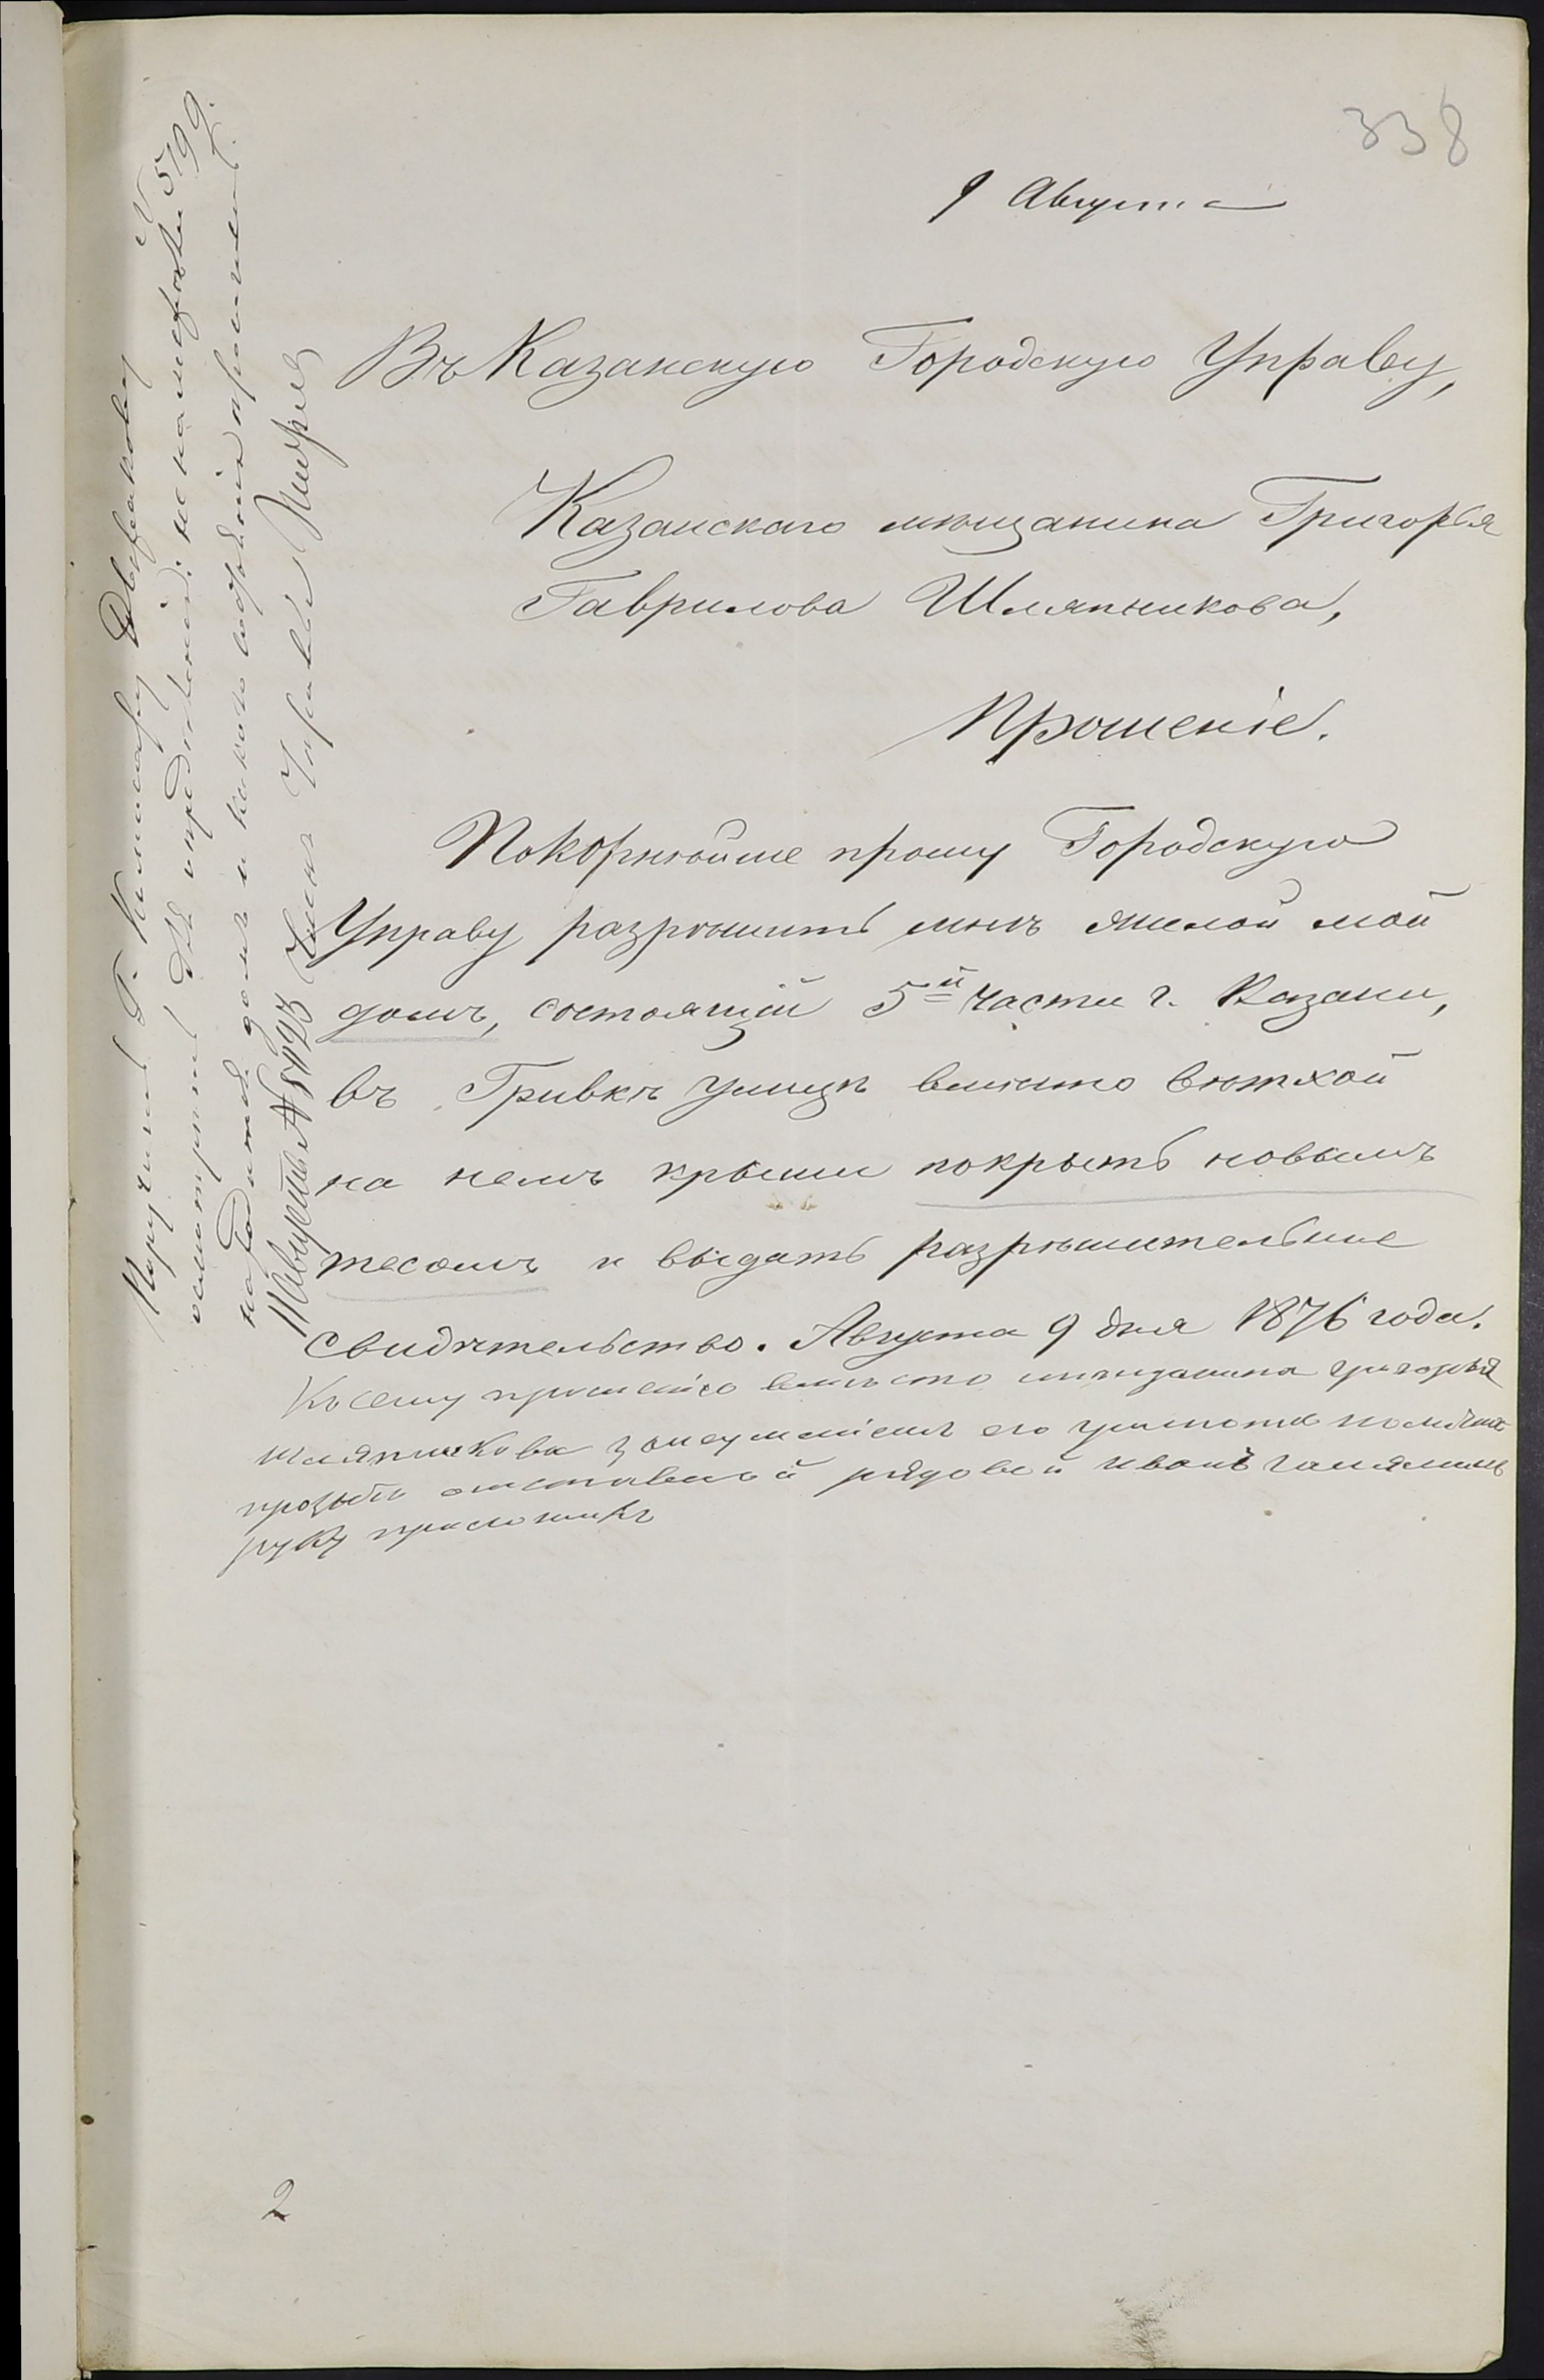 338
9 Августа
Въ Казанскую Городскую Управу,
Казанскаго мѣщанина Григорья
Гаврилова Шляпникова,
Прошеніе.
Покорнѣйше прошу Городскую
Управу разрѣшить мнѣ жилой мой
домъ, состоящій 5й части г. Казани,
въ Гривкѣ улицѣ вмѣсто вѣтхой
на немъ крыши покрыть новымъ
тесомъ и выдать разрѣшительное
свидѣтельство. Августа 9 дня 1876 года.
Къ сему прошенію вмѣсто мѣщанина григорья
шляпникова за неумѣніемъ его грамоте по личной
прозьбѣ отставной рядовой иванъ
руку приложилъ
Поручить Г. Комисару Дверякову
осмотрѣть и предъ №5199
находится домъ и какого
11 Августа №5423 Членъ Управы
2